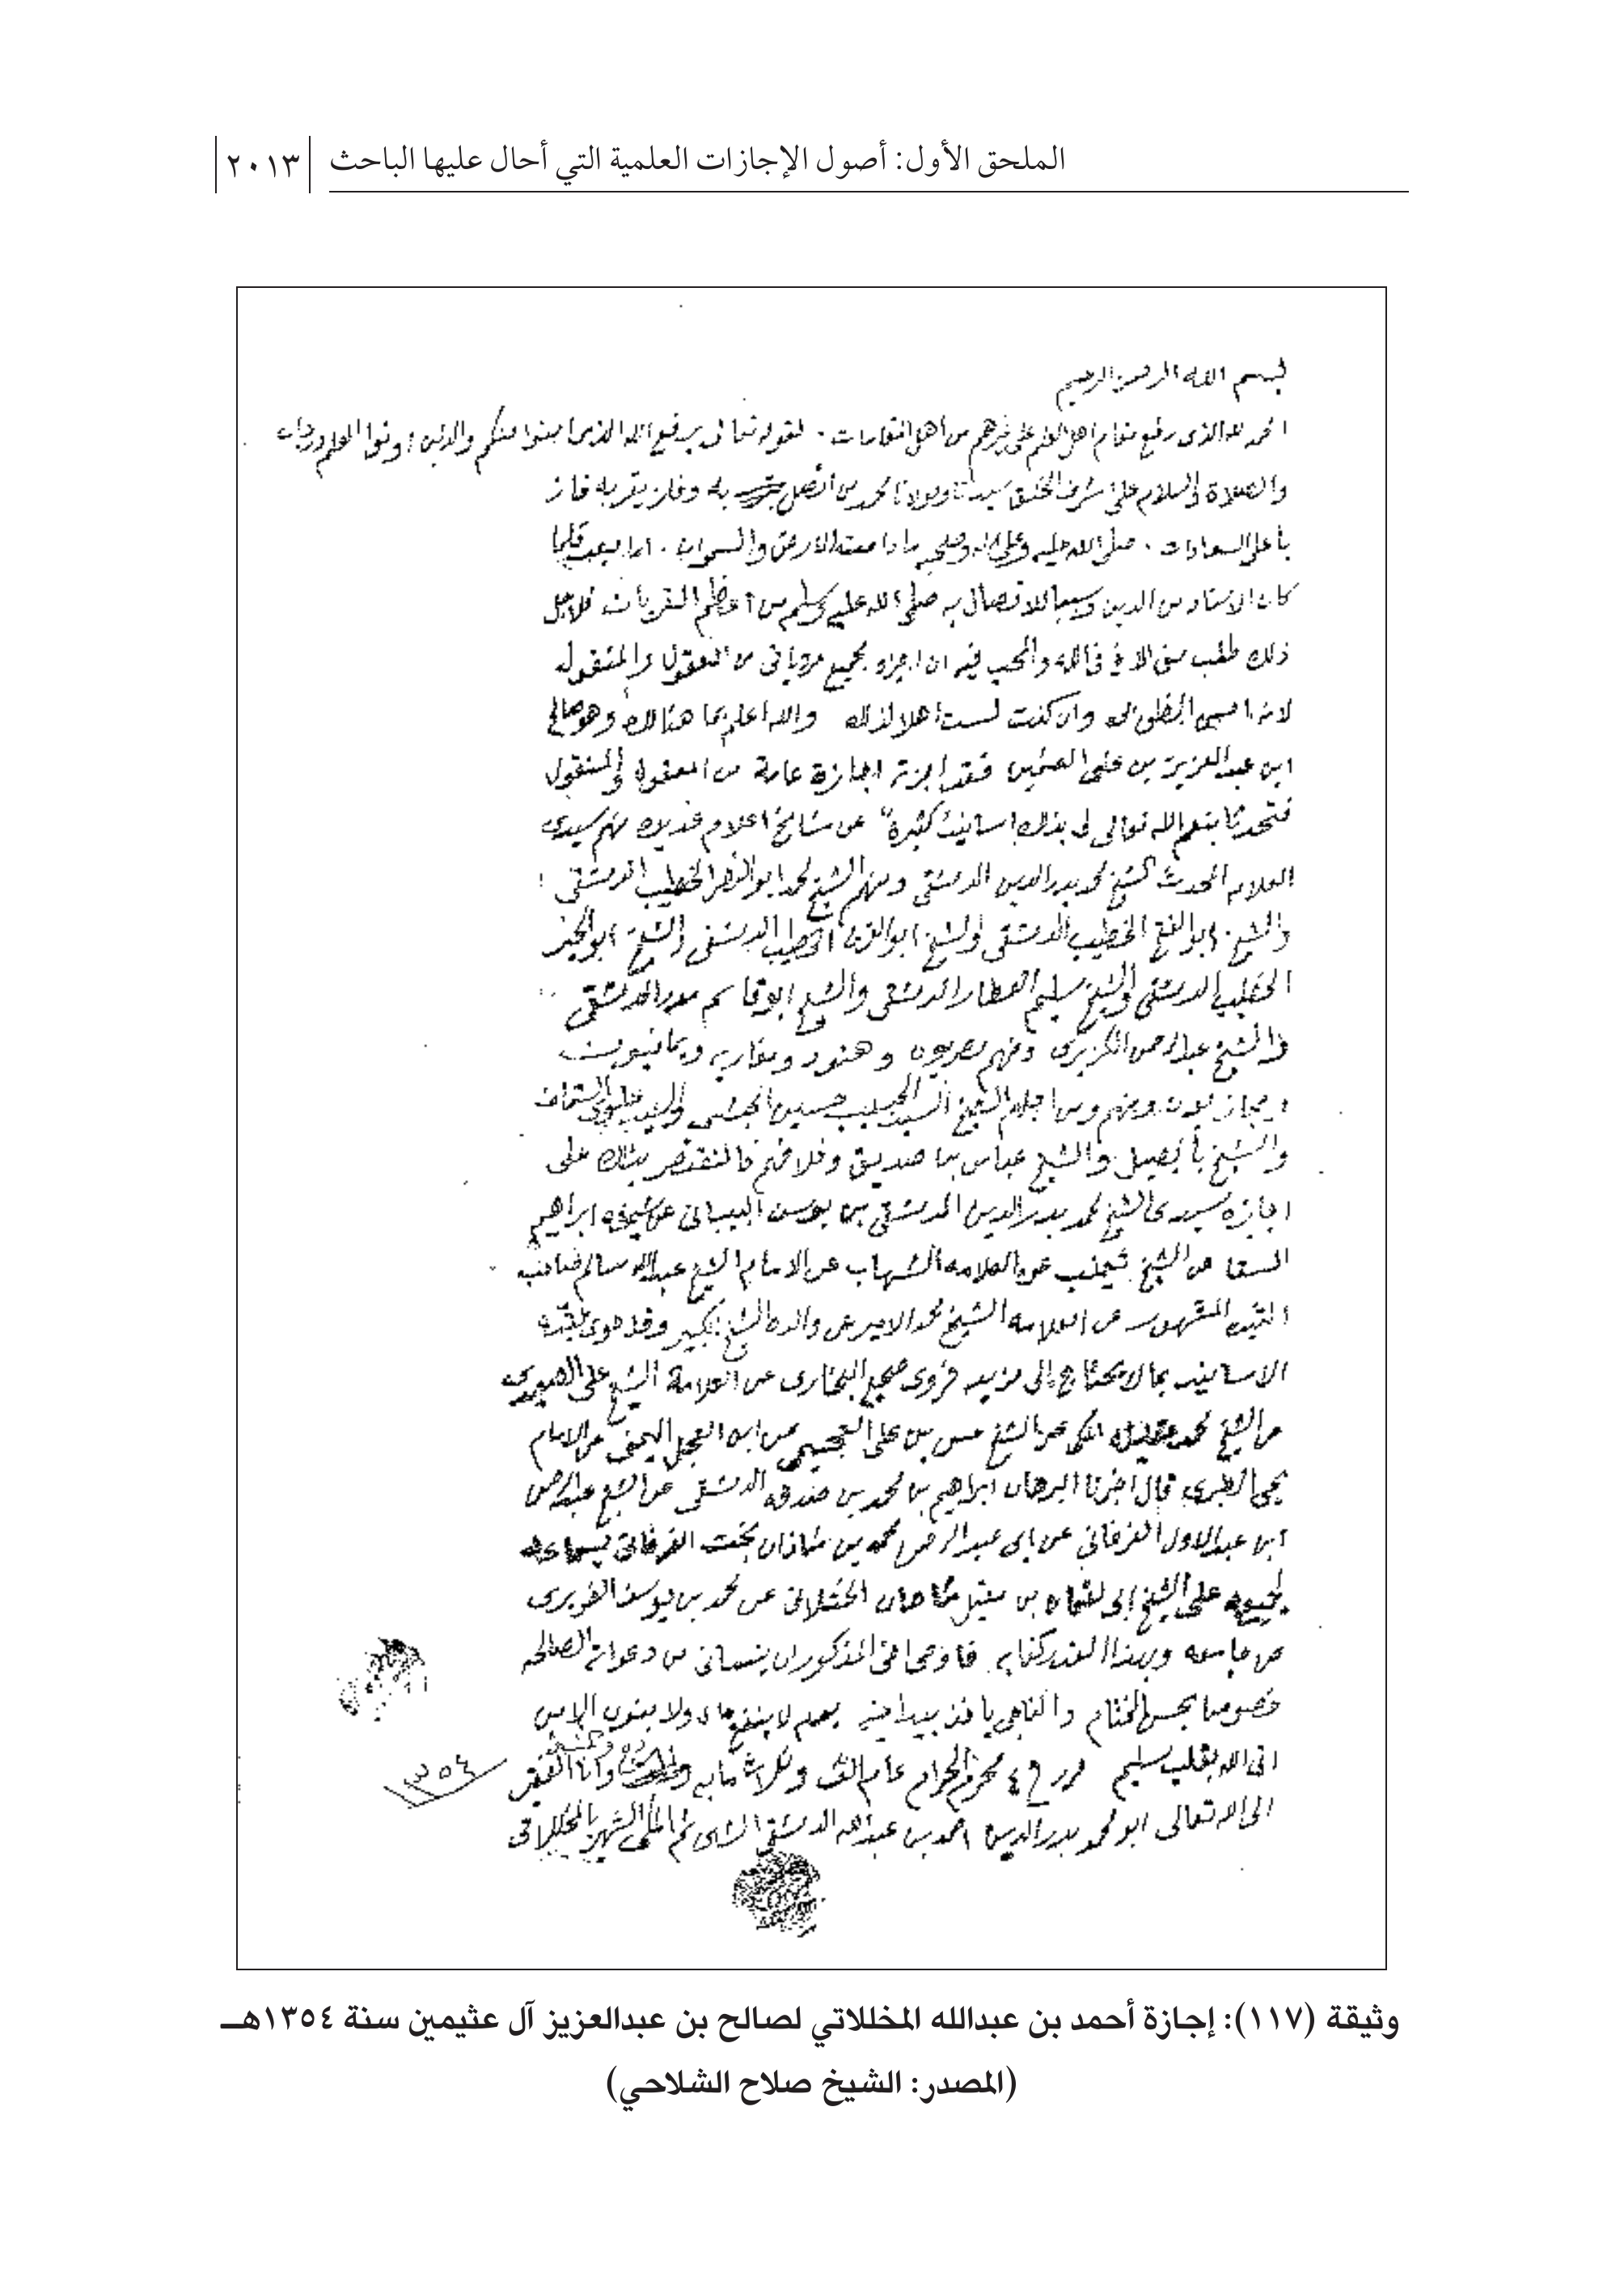 الملحق الأول: أصول الإجازات العلمية التي أحال عليها الباحث
٢٠١٣
بسم الله الرحمن الرحيم
الحمد لله الذى رفع مقام اهل العلم على غيرهم من أهل المقامات . لقوله تعالى يرفع الله الذين امنوا منكم والذين اوتوا العلم درجات
والصلاة والسلام على اشرف الخلق سيدنا ومولانا محمد من اتصل به وفاز بقربه فاز
بأعلى السعادات . صلى الله عليه وعلى اله وصحبه ما دامت الارض والسموات . اما بعد فلما
كان الاسناد من الدين وسببا للاتصال به صلى الله عليه وسلم من أعظم القربات فلاجل
ذلك طلب منى الاخ فى الله والمحب فيه ان اجيزه بجميع مروياتى من المعقول والمنقول
لانه احسن الظن بى وان كنت لست أهلا لذلك والله اعلم بما هنالك وهو صالح
ابن عبد العزيز بن على العثيمين فقد اجزته اجازة عامة من المعقول والمنقول
فتحدثا بنعم الله تعالى لى بذلك اسانيد كثيرة عن مشايخ اعلام عديده منهم سيدى
العلامه المحدث الشيخ محمد بدر الدين الدمشقى ومنهم الشيخ محمد ابو النصر الخطيب الدمشقى
والشيخ ابو الفتح الخطيب الدمشقى والشيخ ابو الفرج الخطيب الدمشقى والشيخ ابو الخير
الخطيب الدمشقى والشيخ سليم العطار الدمشقى والشيخ ابو قاسم الدمشقى
والشيخ عبد الرحمن الكزبرى ومنهم مصريون وهنود ومغاربه ويمانيون
وحجازيون ومنهم ومن اجلهم الشيخ السيد الحبيب حسين الحبشى والسيد علوى السقاف
والشيخ بأبصيل والشيخ عباس بن صديق وخلافهم فالنقتصر بذلك على
اجازة سيدى الشيخ محمد بدر الدين الدمشقى بن يوسف البيبانى عن شيخه ابراهيم
السقا عن الشيخ ثعيلب عن العلامه الشهاب عن الامام الشيخ عبد الله سالم صاحب
الثبت المشهور عن العلامه الشيخ محمد الامير عن والده الشيخ الكبير وقد حوى ثبته
الاسانيد بما لا يحتاج إلى مزيد فروى صحيح البخارى عن العلامة الشيخ على الصعيدى
عن الشيخ محمد عقيلة المكى عن الشيخ حسن بن على العجيمى عن ابن العجل اليمنى عن الامام
يحيى الطبرى قال اخبرنا البرهان ابراهيم بن محمد بن صدقه الدمشقى عن الشيخ عبد الرحمن
ابن عبد الاول الفرغانى عن ابى عبد الرحمن محمد بن شاذان بخت الفرغانى بسماعه
لجميعه على الشيخ ابى لقمان بن مقبل شاهان الختلانى عن محمد بن يوسف الفربرى
عن جامعه وبهذا القدر كفايه. فاوصى اخى المذكور ان لا ينسانى من دعواته الصالحه
خصوصا بحسن الختام والله يأخذ بيدا يوم لا ينفع مال ولا بنون الا من
اتى الله بقلب سليم حرر فى ٤ محرم الحرام عام الف وثلاث مايه وأنا الفقير
١٣٥٤
الى الله تعالى ابو محمد بدر الدين احمد بن عبد الله الدمشقى الشامى ثم المكى الشهير بالمخللاتى
وثيقة (١١٧): إجازة أحمد بن عبدالله المخللاتي لصالح بن عبدالعزيز آل عثيمين سنة ١٣٥٤هـ
(المصدر: الشيخ صلاح الشلاحي)